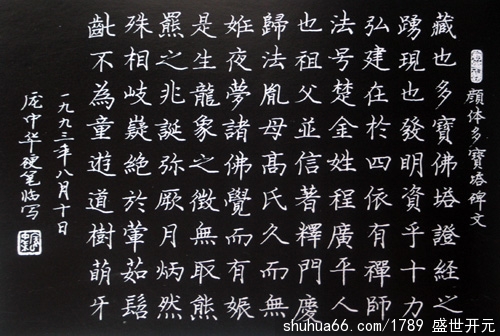 顔体多寶塔碑文
藏也多寶佛塔證經之
踴現也發明資乎十力
弘建在於四依有禪師
法号楚金姓程廣平人
也祖父並信著釋門慶
歸法胤母髙氏久而無
姙夜夢諸佛覺而有娠
是生龍象之徵無取熊
羆之兆誕弥厥月炳然
殊相岐嶷絕於葷茹髫
齔不為童遊道樹萌牙
一九九三年八月十日
庞中华硬笔临写
shuhua66.com/1789 盛世开元